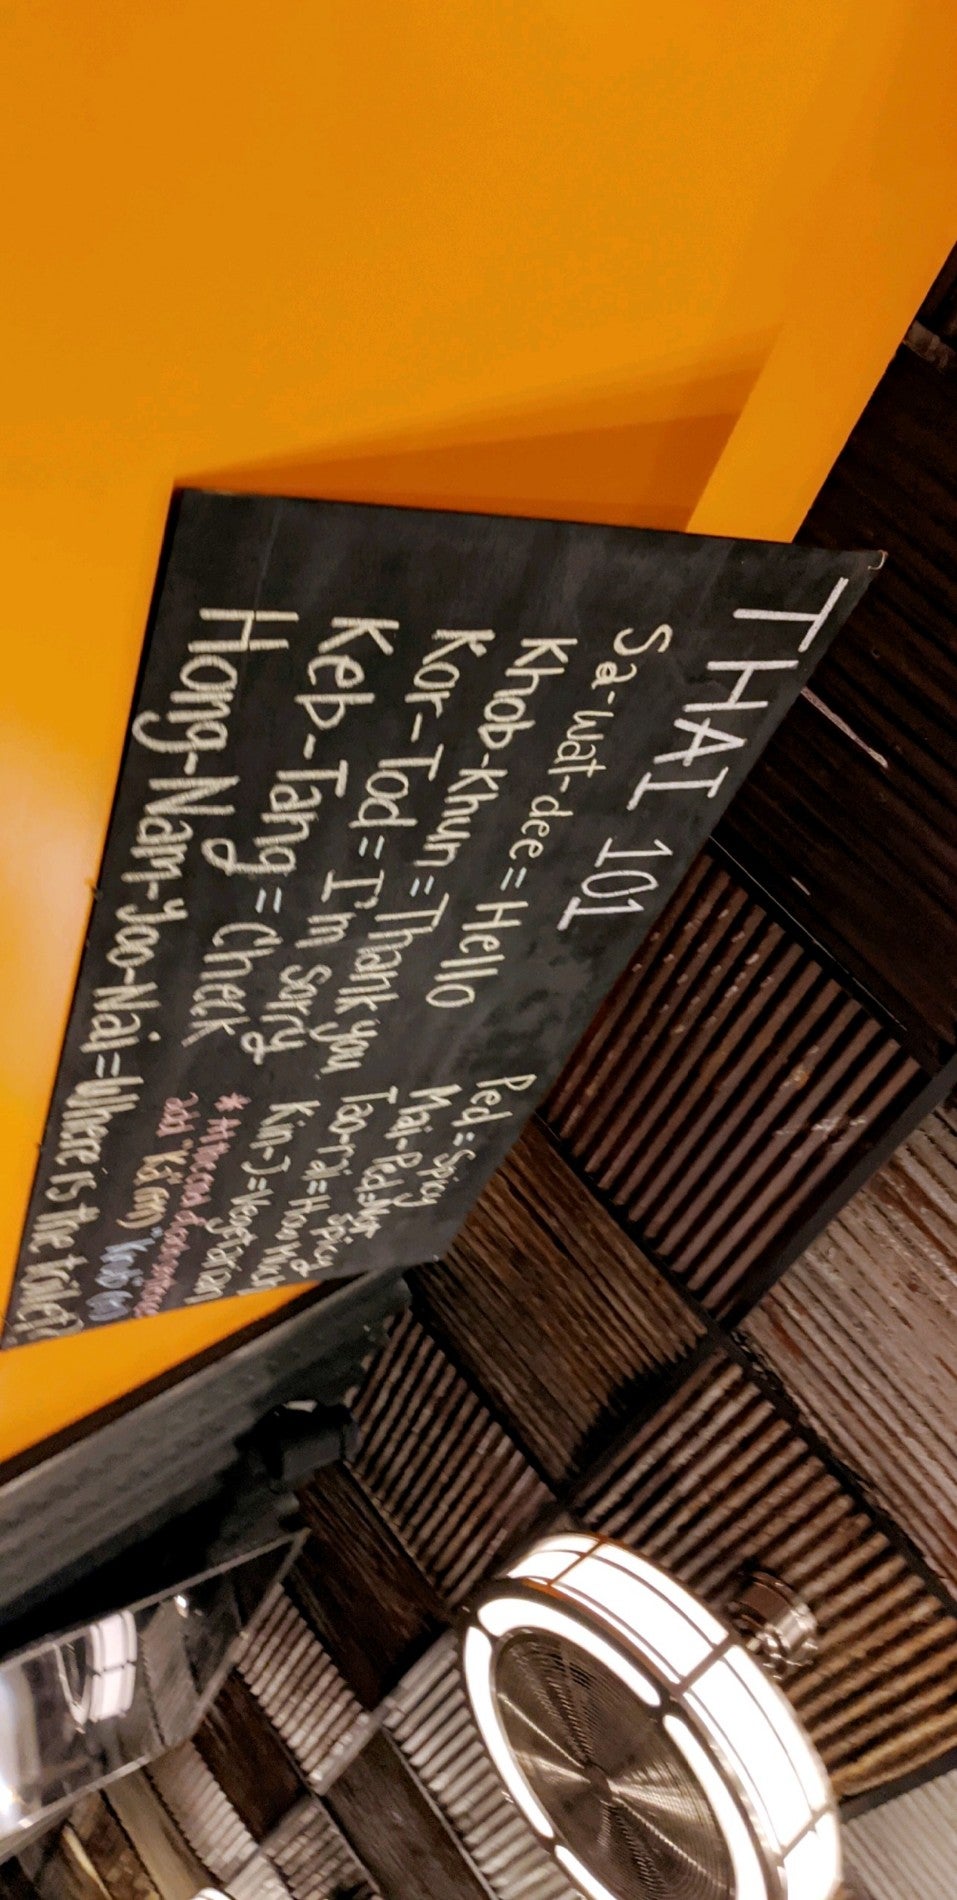 THAI 101
Sa-wat-dee = Hello
Khob-Khun = Thank you
Kor-Tod = I'm sorry
Keb-Tang = Check
Hong-Nam-Yoo-Nai = Where is the toilet
Ped = Spicy
Mai-Ped = Not Spicy
Tao-rai = How Much
Kin-J = Vegetarian
add "Ka"